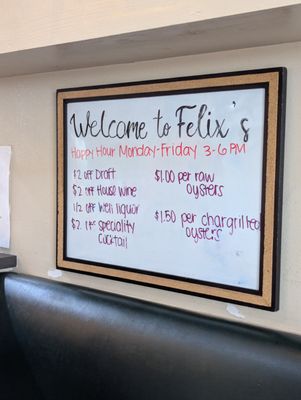 Welcome to Felix's
Happy Hour Monday-Friday 3-6 PM
$2 off Draft
$2 off House Wine
1/2 off Well liquor
$2 off speciality
cocktail
$1.00 per raw
oysters
$1.50 per chargrilled
oysters